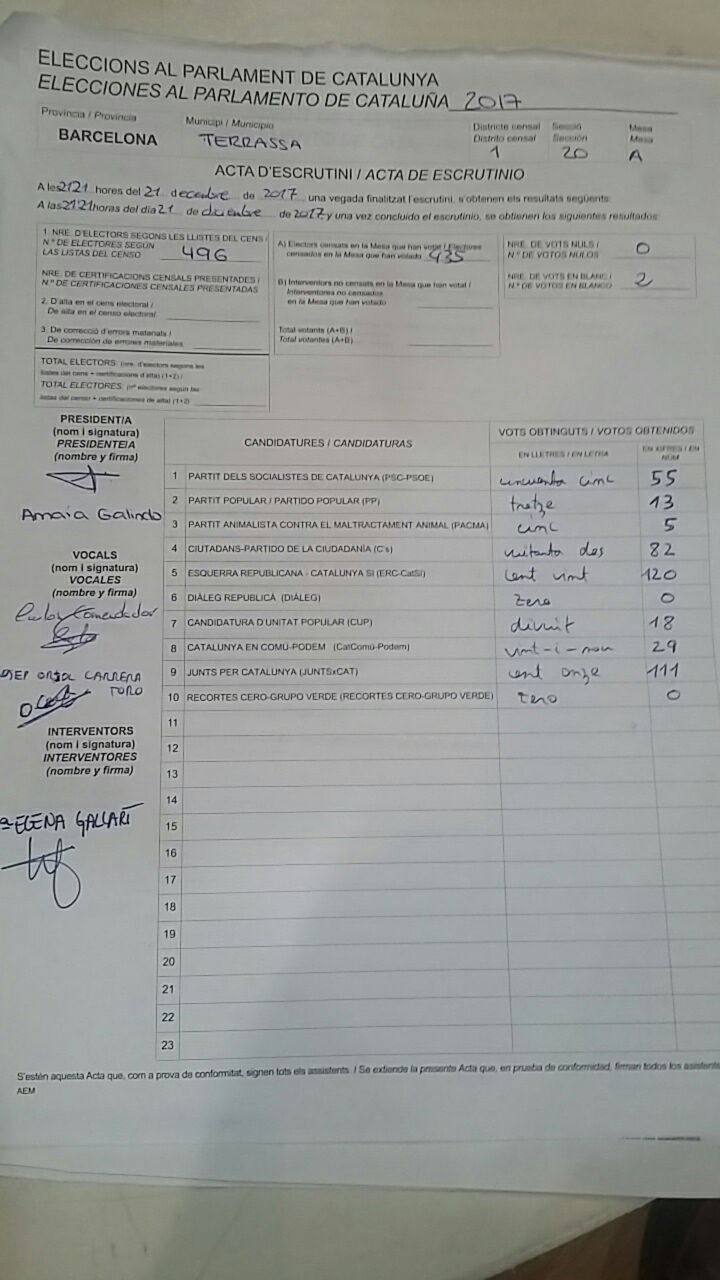 ELECCIONS AL PARLAMENT DE CATALUNYA
ELECCIONES AL PARLAMENTO DE CATALUÑA 2017
Província / Provincia
BARCELONA
Municipi / Municipio
TERRASSA
Districte censal
Distrito censal
1
Secció
Sección
20
Mesa
Mesa
A
ACTA D'ESCRUTINI / ACTA DE ESCRUTINIO
A les 2121 hores del 21 decembre de 2017 una vegada finalitzat l'escrutini, s'obtenen els resultats següents:
A las 2121 horas del día 21 de diciembre de 2017 y una vez concluido el escrutinio, se obtienen los siguientes resultados:
1. NRE. D'ELECTORS SEGONS LES LLISTES DEL CENS /
N.º DE ELECTORES SEGÚN
LAS LISTAS DEL CENSO 496
NRE. DE CERTIFICACIONS CENSALS PRESENTADES /
N.º DE CERTIFICACIONES CENSALES PRESENTADAS
2. D'alta en el cens electoral /
De alta en el censo electoral
3. De correcció d'errors materials /
De corrección de errores materiales
TOTAL ELECTORS: (nre. d'electors segons les
llistes del cens + certificacions d'alta) (1+2) /
TOTAL ELECTORES: (nº electores según las
listas del censo + certificaciones de alta) (1+2)
A) Electors censats en la Mesa que han votat / Electores
censados en la Mesa que han votado 435
B) Interventors no censats en la Mesa que han votat /
Interventores no censados
en la Mesa que han votado
Total votants (A+B) /
Total votantes (A+B)
NRE. DE VOTS NULS /
N.º DE VOTOS NULOS 0
NRE. DE VOTS EN BLANC /
N.º DE VOTOS EN BLANCO 2
PRESIDENT/A
(nom i signatura)
PRESIDENTE/A
(nombre y firma)
Amaia Galindo
VOCALS
(nom i signatura)
VOCALES
(nombre y firma)
Comendador
ORIOL CARRERA
TORO
INTERVENTORS
(nom i signatura)
INTERVENTORES
(nombre y firma)
ELENA GALLART
CANDIDATURES / CANDIDATURAS
VOTS OBTINGUTS / VOTOS OBTENIDOS
EN LLETRES / EN LETRA
EN XIFRES / EN NÚM
1 PARTIT DELS SOCIALISTES DE CATALUNYA (PSC-PSOE) cincuenta cinc 55
2 PARTIT POPULAR / PARTIDO POPULAR (PP) tretze 13
3 PARTIT ANIMALISTA CONTRA EL MALTRACTAMENT ANIMAL (PACMA) cinc 5
4 CIUTADANS-PARTIDO DE LA CIUDADANÍA (C's) vuitanta dos 82
5 ESQUERRA REPUBLICANA - CATALUNYA SÍ (ERC-CatSí) cent vint 120
6 DIÀLEG REPUBLICÀ (DIÀLEG) zero 0
7 CANDIDATURA D'UNITAT POPULAR (CUP) divuit 18
8 CATALUNYA EN COMÚ-PODEM (CatComú-Podem) vint-i-nou 29
9 JUNTS PER CATALUNYA (JUNTSxCAT) cent onze 111
10 RECORTES CERO-GRUPO VERDE (RECORTES CERO-GRUPO VERDE) zero 0
11
12
13
14
15
16
17
18
19
20
21
22
23
S'estén aquesta Acta que, com a prova de conformitat, signen tots els assistents. / Se extiende la presente Acta que, en prueba de conformidad, firman todos los asistentes
AEM